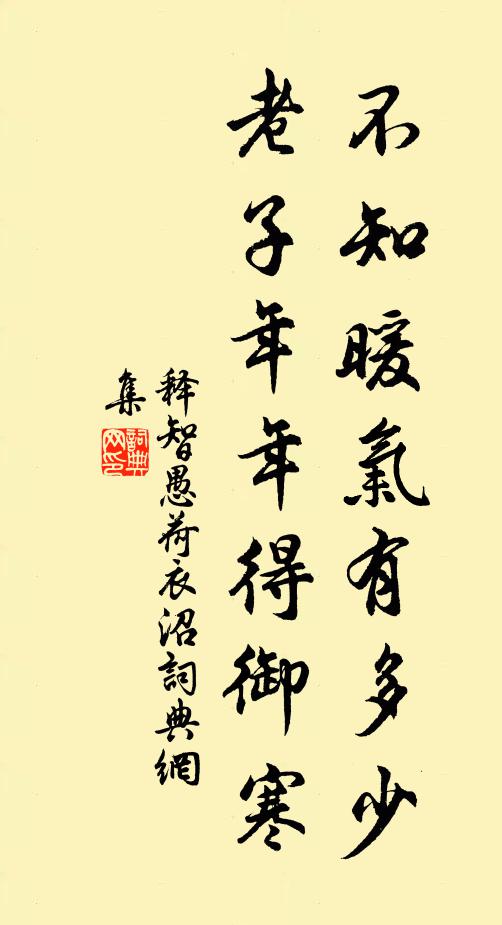 不知暖氣有多少
老子年年得御寒
释智愚荷衣沼詞典網
集
詞典网印